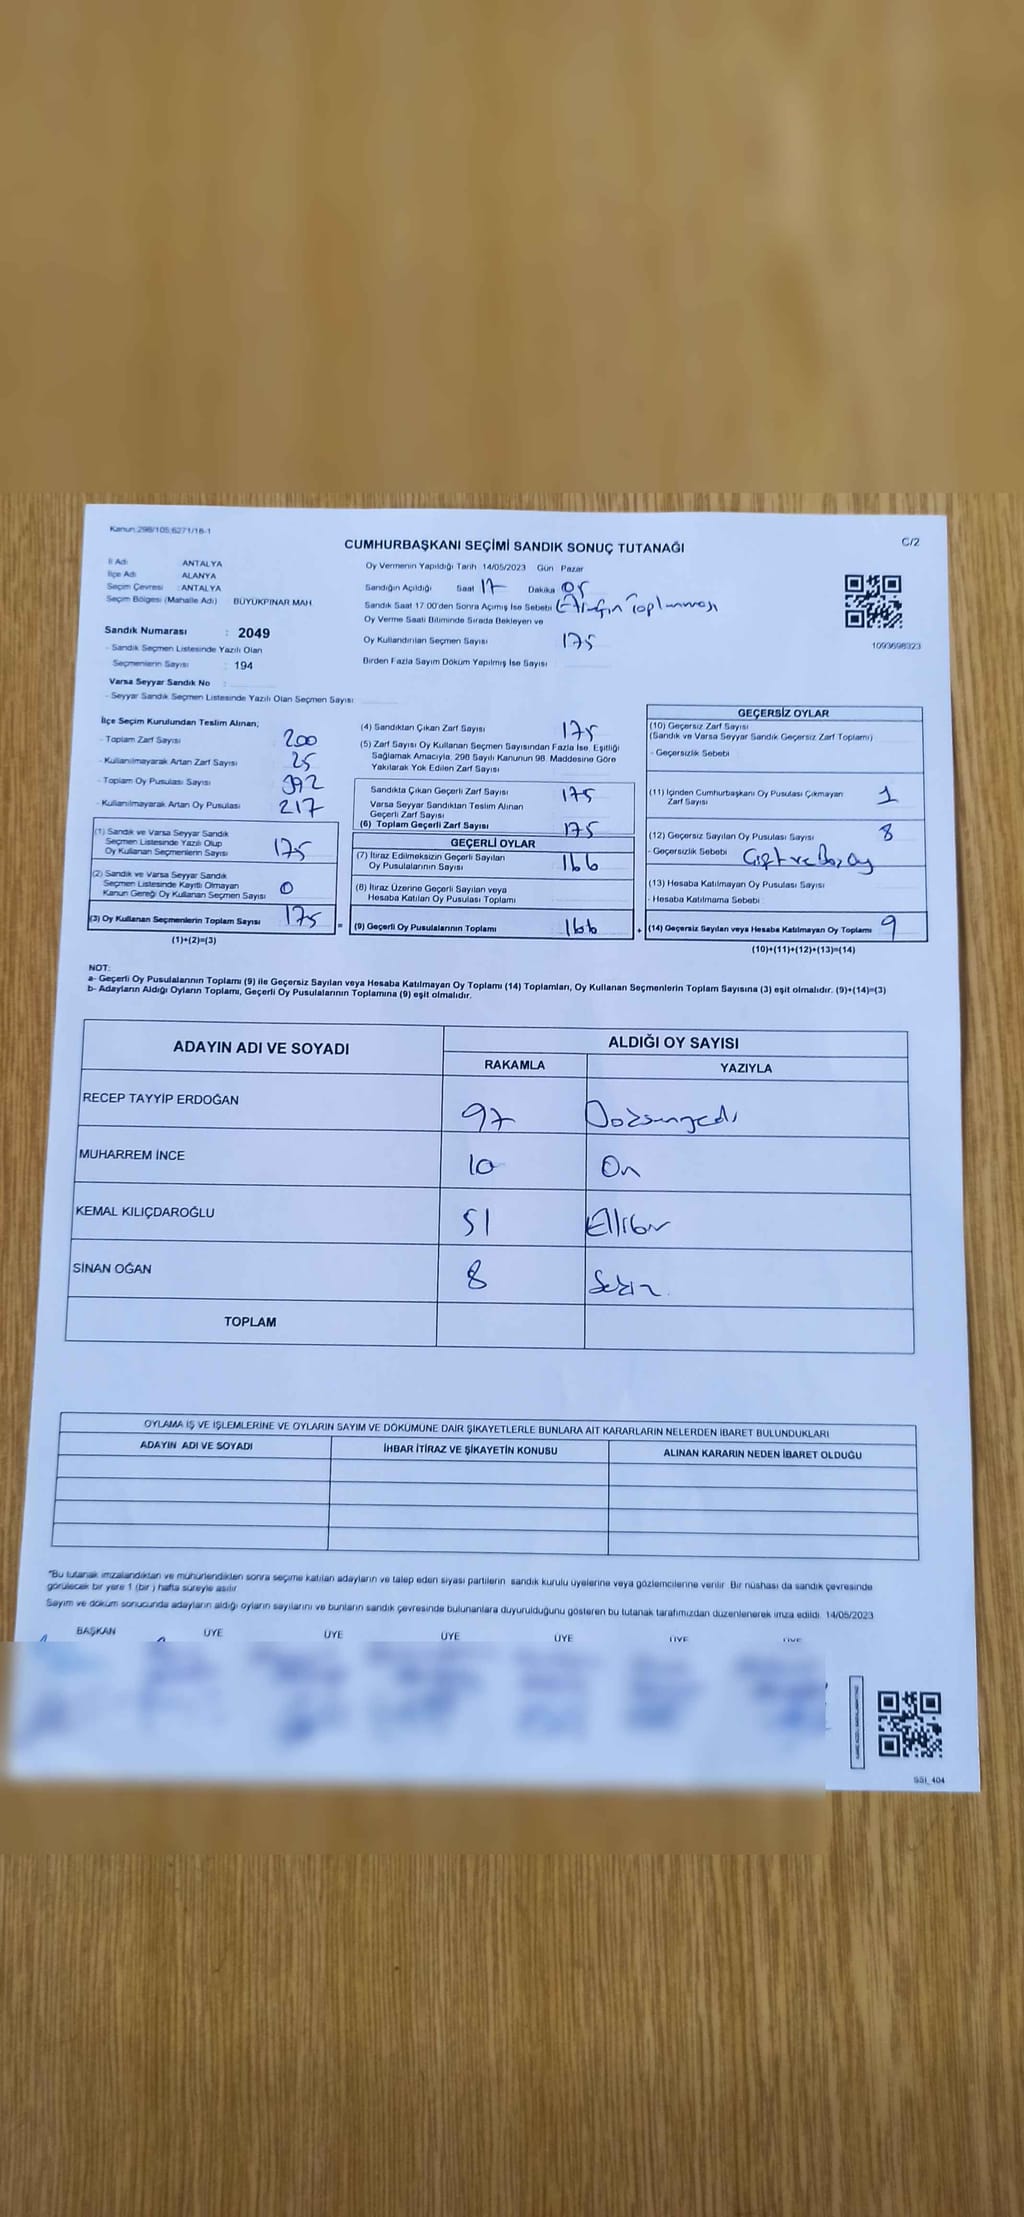 Kanun:298/105;6271/16-1
C/2
CUMHURBAŞKANI SEÇİMİ SANDIK SONUÇ TUTANAĞI
İl Adı : ANTALYA
İlçe Adı : ALANYA
Seçim Çevresi : ANTALYA
Seçim Bölgesi (Mahalle Adı) BÜYÜKPINAR MAH.
Sandık Numarası : 2049
- Sandık Seçmen Listesinde Yazılı Olan
Seçmenlerin Sayısı : 194
Varsa Seyyar Sandık No :
- Seyyar Sandık Seçmen Listesinde Yazılı Olan Seçmen Sayısı:
Oy Vermenin Yapıldığı Tarih 14/05/2023 Gün Pazar
Sandığın Açıldığı Saat 17 Dakika 05
Sandık Saat 17.00'den Sonra Açımış İse Sebebi Toplanması
Oy Verme Saati Bitiminde Sırada Bekleyen ve
Oy Kullandırılan Seçmen Sayısı 175
Birden Fazla Sayım Döküm Yapılmış İse Sayısı
1093698323
İlçe Seçim Kurulundan Teslim Alınan;
- Toplam Zarf Sayısı 200
- Kullanılmayarak Artan Zarf Sayısı 25
- Toplam Oy Pusulası Sayısı 392
- Kullanılmayarak Artan Oy Pusulası 217
(1) Sandık ve Varsa Seyyar Sandık
Seçmen Listesinde Yazılı Olup
Oy Kullanan Seçmenlerin Sayısı 175
(2) Sandık ve Varsa Seyyar Sandık
Seçmen Listesinde Kayıtlı Olmayan
Kanun Gereği Oy Kullanan Seçmen Sayısı 0
(3) Oy Kullanan Seçmenlerin Toplam Sayısı 175 =
(1)+(2)=(3)
(4) Sandıktan Çıkan Zarf Sayısı 175
(5) Zarf Sayısı Oy Kullanan Seçmen Sayısından Fazla İse, Eşitliği
Sağlamak Amacıyla, 298 Sayılı Kanunun 98. Maddesine Göre
Yakılarak Yok Edilen Zarf Sayısı
Sandıkta Çıkan Geçerli Zarf Sayısı 175
Varsa Seyyar Sandıktan Teslim Alınan
Geçerli Zarf Sayısı
(6) Toplam Geçerli Zarf Sayısı 175
GEÇERLİ OYLAR
(7) İtiraz Edilmeksizin Geçerli Sayılan
Oy Pusulalarının Sayısı 166
(8) İtiraz Üzerine Geçerli Sayılan veya
Hesaba Katılan Oy Pusulası Toplamı
(9) Geçerli Oy Pusulalarının Toplamı 166 +
GEÇERSİZ OYLAR
(10) Geçersiz Zarf Sayısı
(Sandık ve Varsa Seyyar Sandık Geçersiz Zarf Toplamı)
- Geçersizlik Sebebi
(11) İçinden Cumhurbaşkanı Oy Pusulası Çıkmayan
Zarf Sayısı 1
(12) Geçersiz Sayılan Oy Pusulası Sayısı 8
- Geçersizlik Sebebi Çift ve Boş Oy
(13) Hesaba Katılmayan Oy Pusulası Sayısı
- Hesaba Katılmama Sebebi
(14) Geçersiz Sayılan veya Hesaba Katılmayan Oy Toplamı 9
(10)+(11)+(12)+(13)=(14)
NOT:
a- Geçerli Oy Pusulalarının Toplamı (9) ile Geçersiz Sayılan veya Hesaba Katılmayan Oy Toplamı (14) Toplamları, Oy Kullanan Seçmenlerin Toplam Sayısına (3) eşit olmalıdır. (9)+(14)=(3)
b- Adayların Aldığı Oyların Toplamı, Geçerli Oy Pusulalarının Toplamına (9) eşit olmalıdır.
ADAYIN ADI VE SOYADI ALDIĞI OY SAYISI
RAKAMLA YAZIYLA
RECEP TAYYİP ERDOĞAN 97 Doksanyedi
MUHARREM İNCE 10 On
KEMAL KILIÇDAROĞLU 51 Ellibir
SİNAN OĞAN 8 Sekiz
TOPLAM
OYLAMA İŞ VE İŞLEMLERİNE VE OYLARIN SAYIM VE DÖKÜMÜNE DAİR ŞİKAYETLERLE BUNLARA AİT KARARLARIN NELERDEN İBARET BULUNDUKLARI
ADAYIN ADI VE SOYADI İHBAR İTİRAZ VE ŞİKAYETİN KONUSU ALINAN KARARIN NEDEN İBARET OLDUĞU
*Bu tutanak imzalandıktan ve mühürlendikten sonra seçime katılan adayların ve talep eden siyasi partilerin sandık kurulu üyelerine veya gözlemcilerine verilir. Bir nüshası da sandık çevresinde
görülecek bir yere 1 (bir ) hafta süreyle asılır.
Sayım ve döküm sonucunda adayların aldığı oyların sayılarını ve bunların sandık çevresinde bulunanlara duyurulduğunu gösteren bu tutanak tarafımızdan düzenlenerek imza edildi. 14/05/2023
BAŞKAN ÜYE ÜYE ÜYE ÜYE ÜYE ÜYE
SSI_404